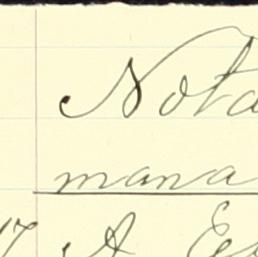 Nota
mana
17 A